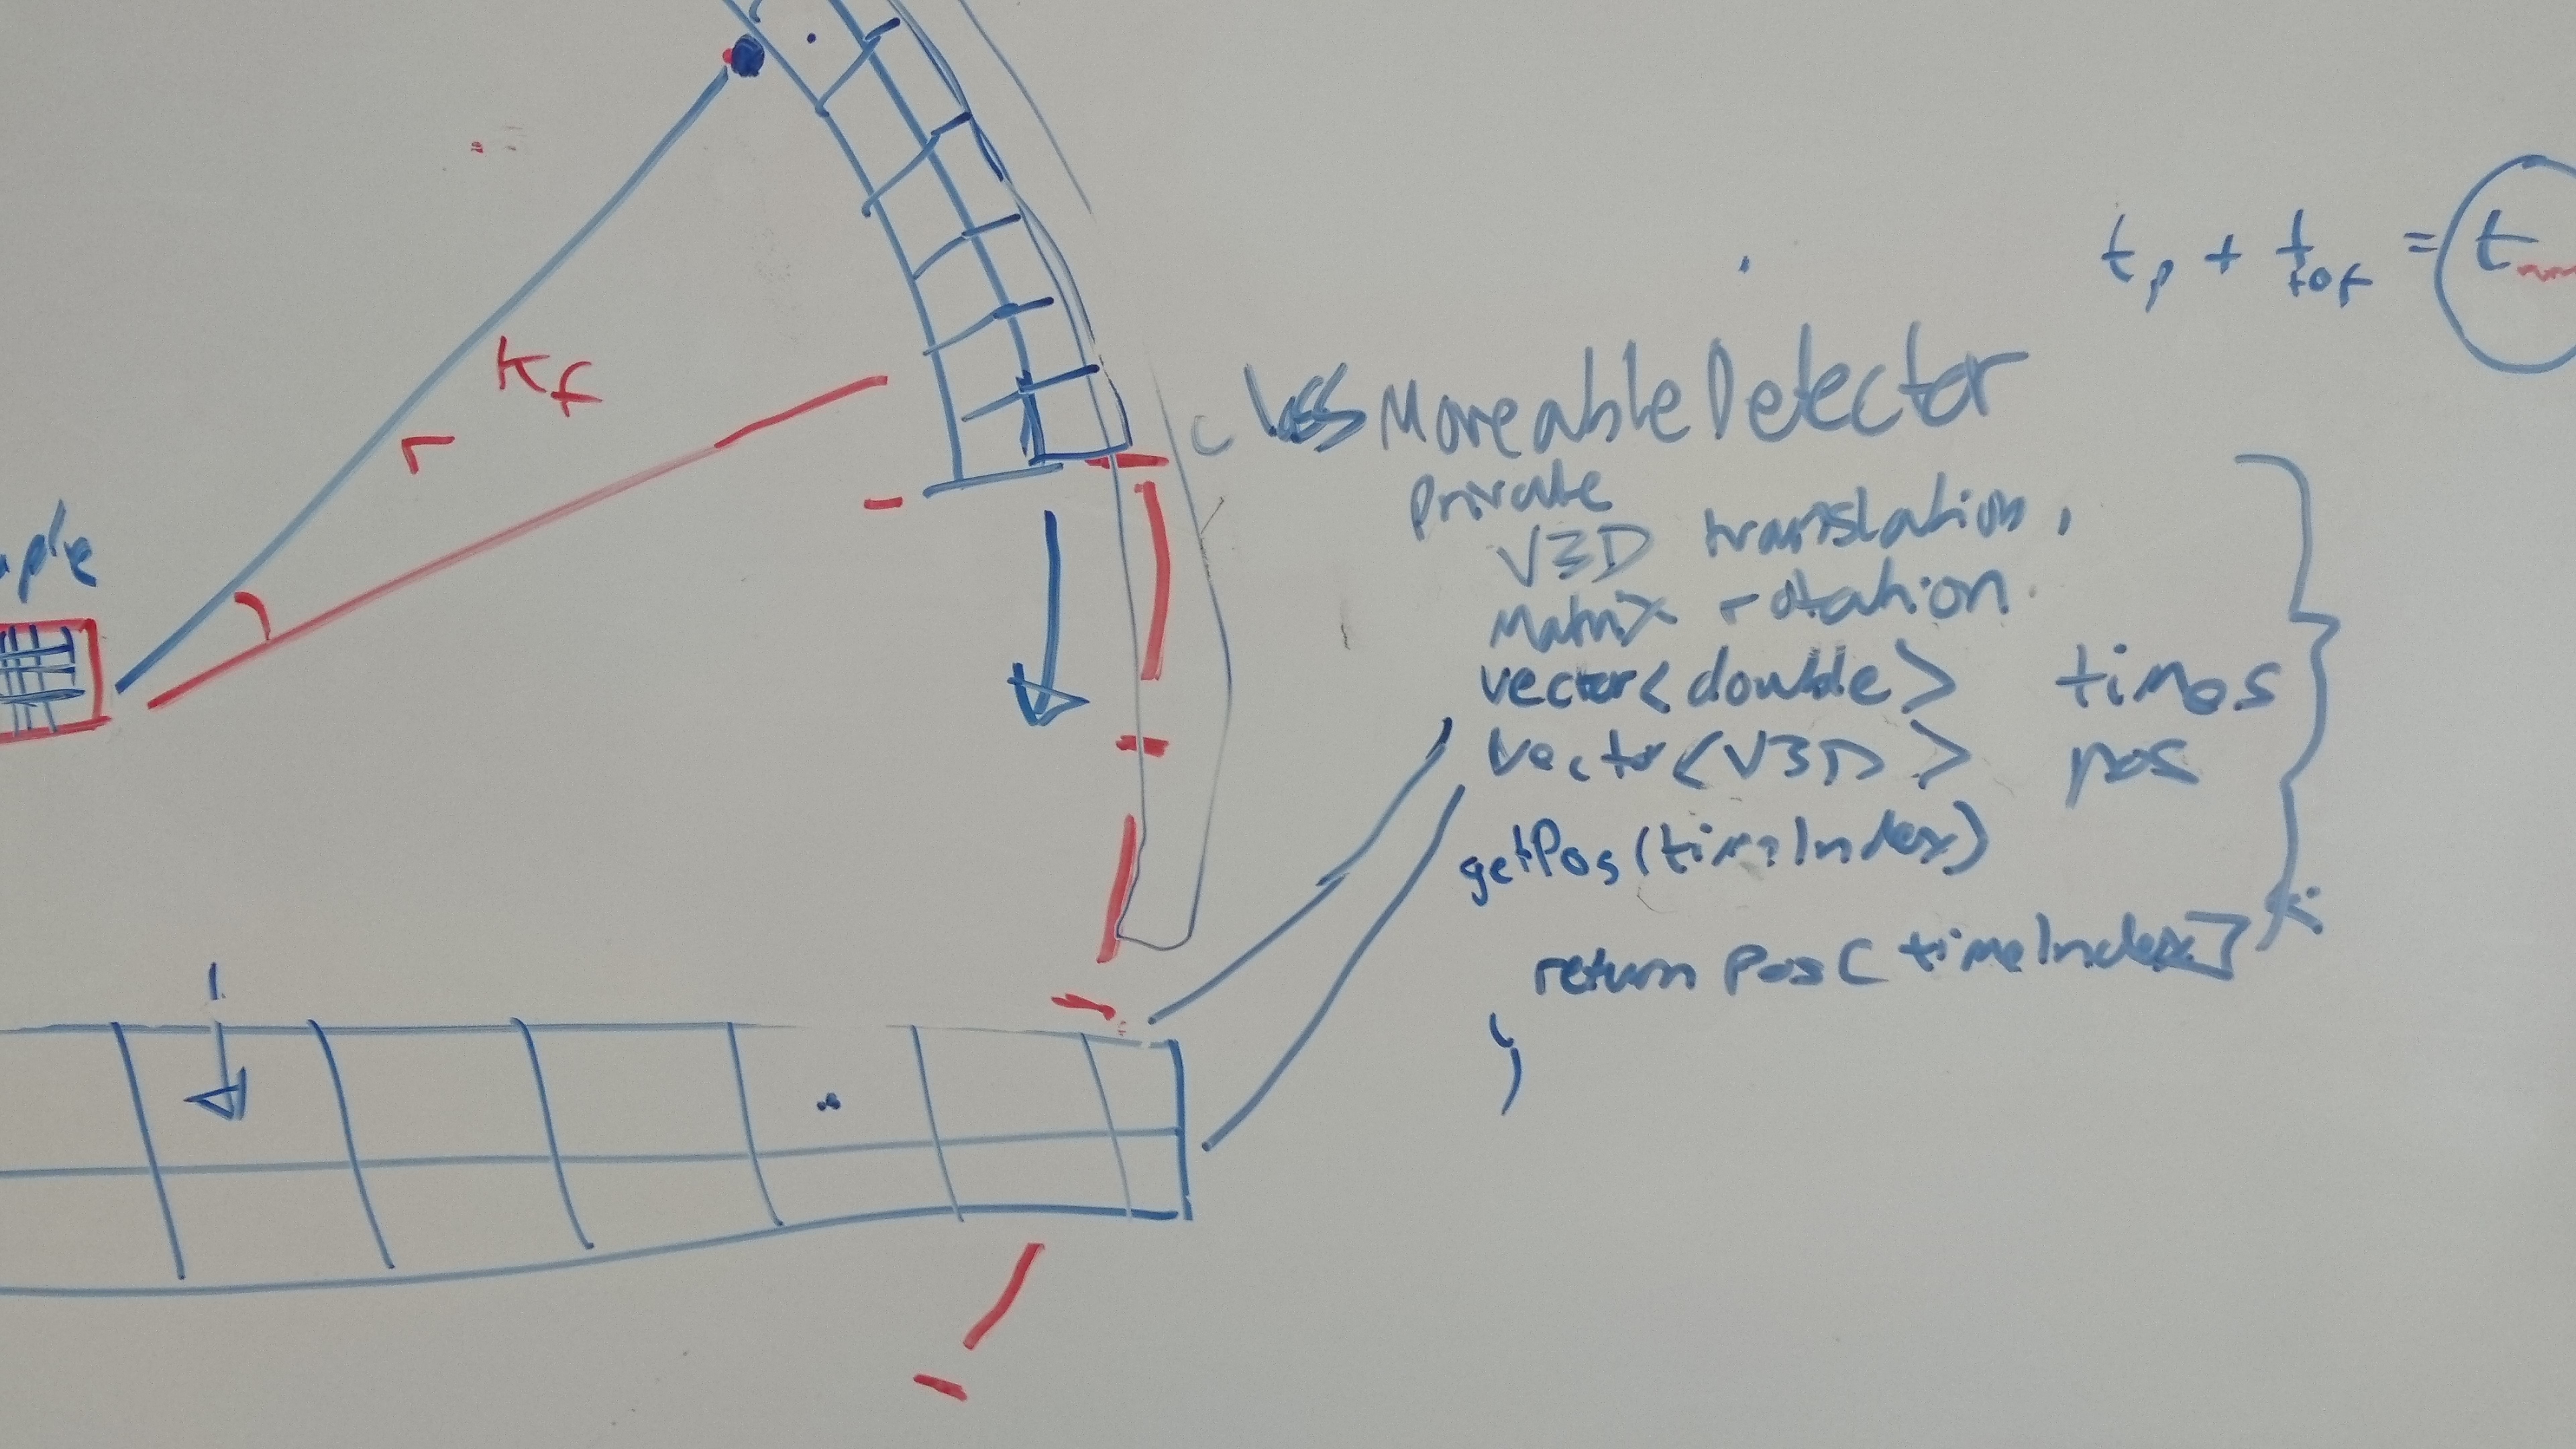 t_p + t_tof = t
K_f
r
class MoveableDetector
private
V3D translation,
Matrix rotation
vector<double> times
vector<V3D> pos
getPos(timeIndex)
return pos[timeIndex]
}